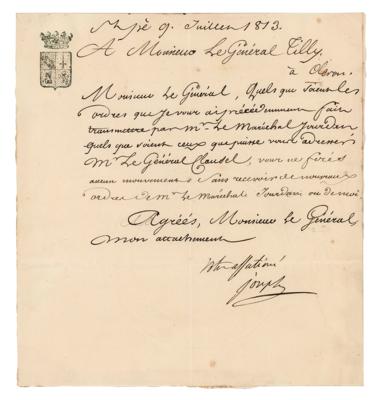 St Pé 9. Juillet 1813.
A Monsieur Le Général Tilly.
à Oloron.
Monsieur Le Général, Quels que soient les
ordres que je vous ai précédemment fait
transmettre par Mr. Le Maréchal Jourdan
quels que soient ceux que puisse vous adresser
Mr. Le Général Clausel, vous ne ferés
aucun mouvement Sans recevoir de nouveaux
ordres de Mr. Le Maréchal Jourdan ou de moi
Agréés, Monsieur Le Général,
mon attachement
Votre affectioné
Joseph